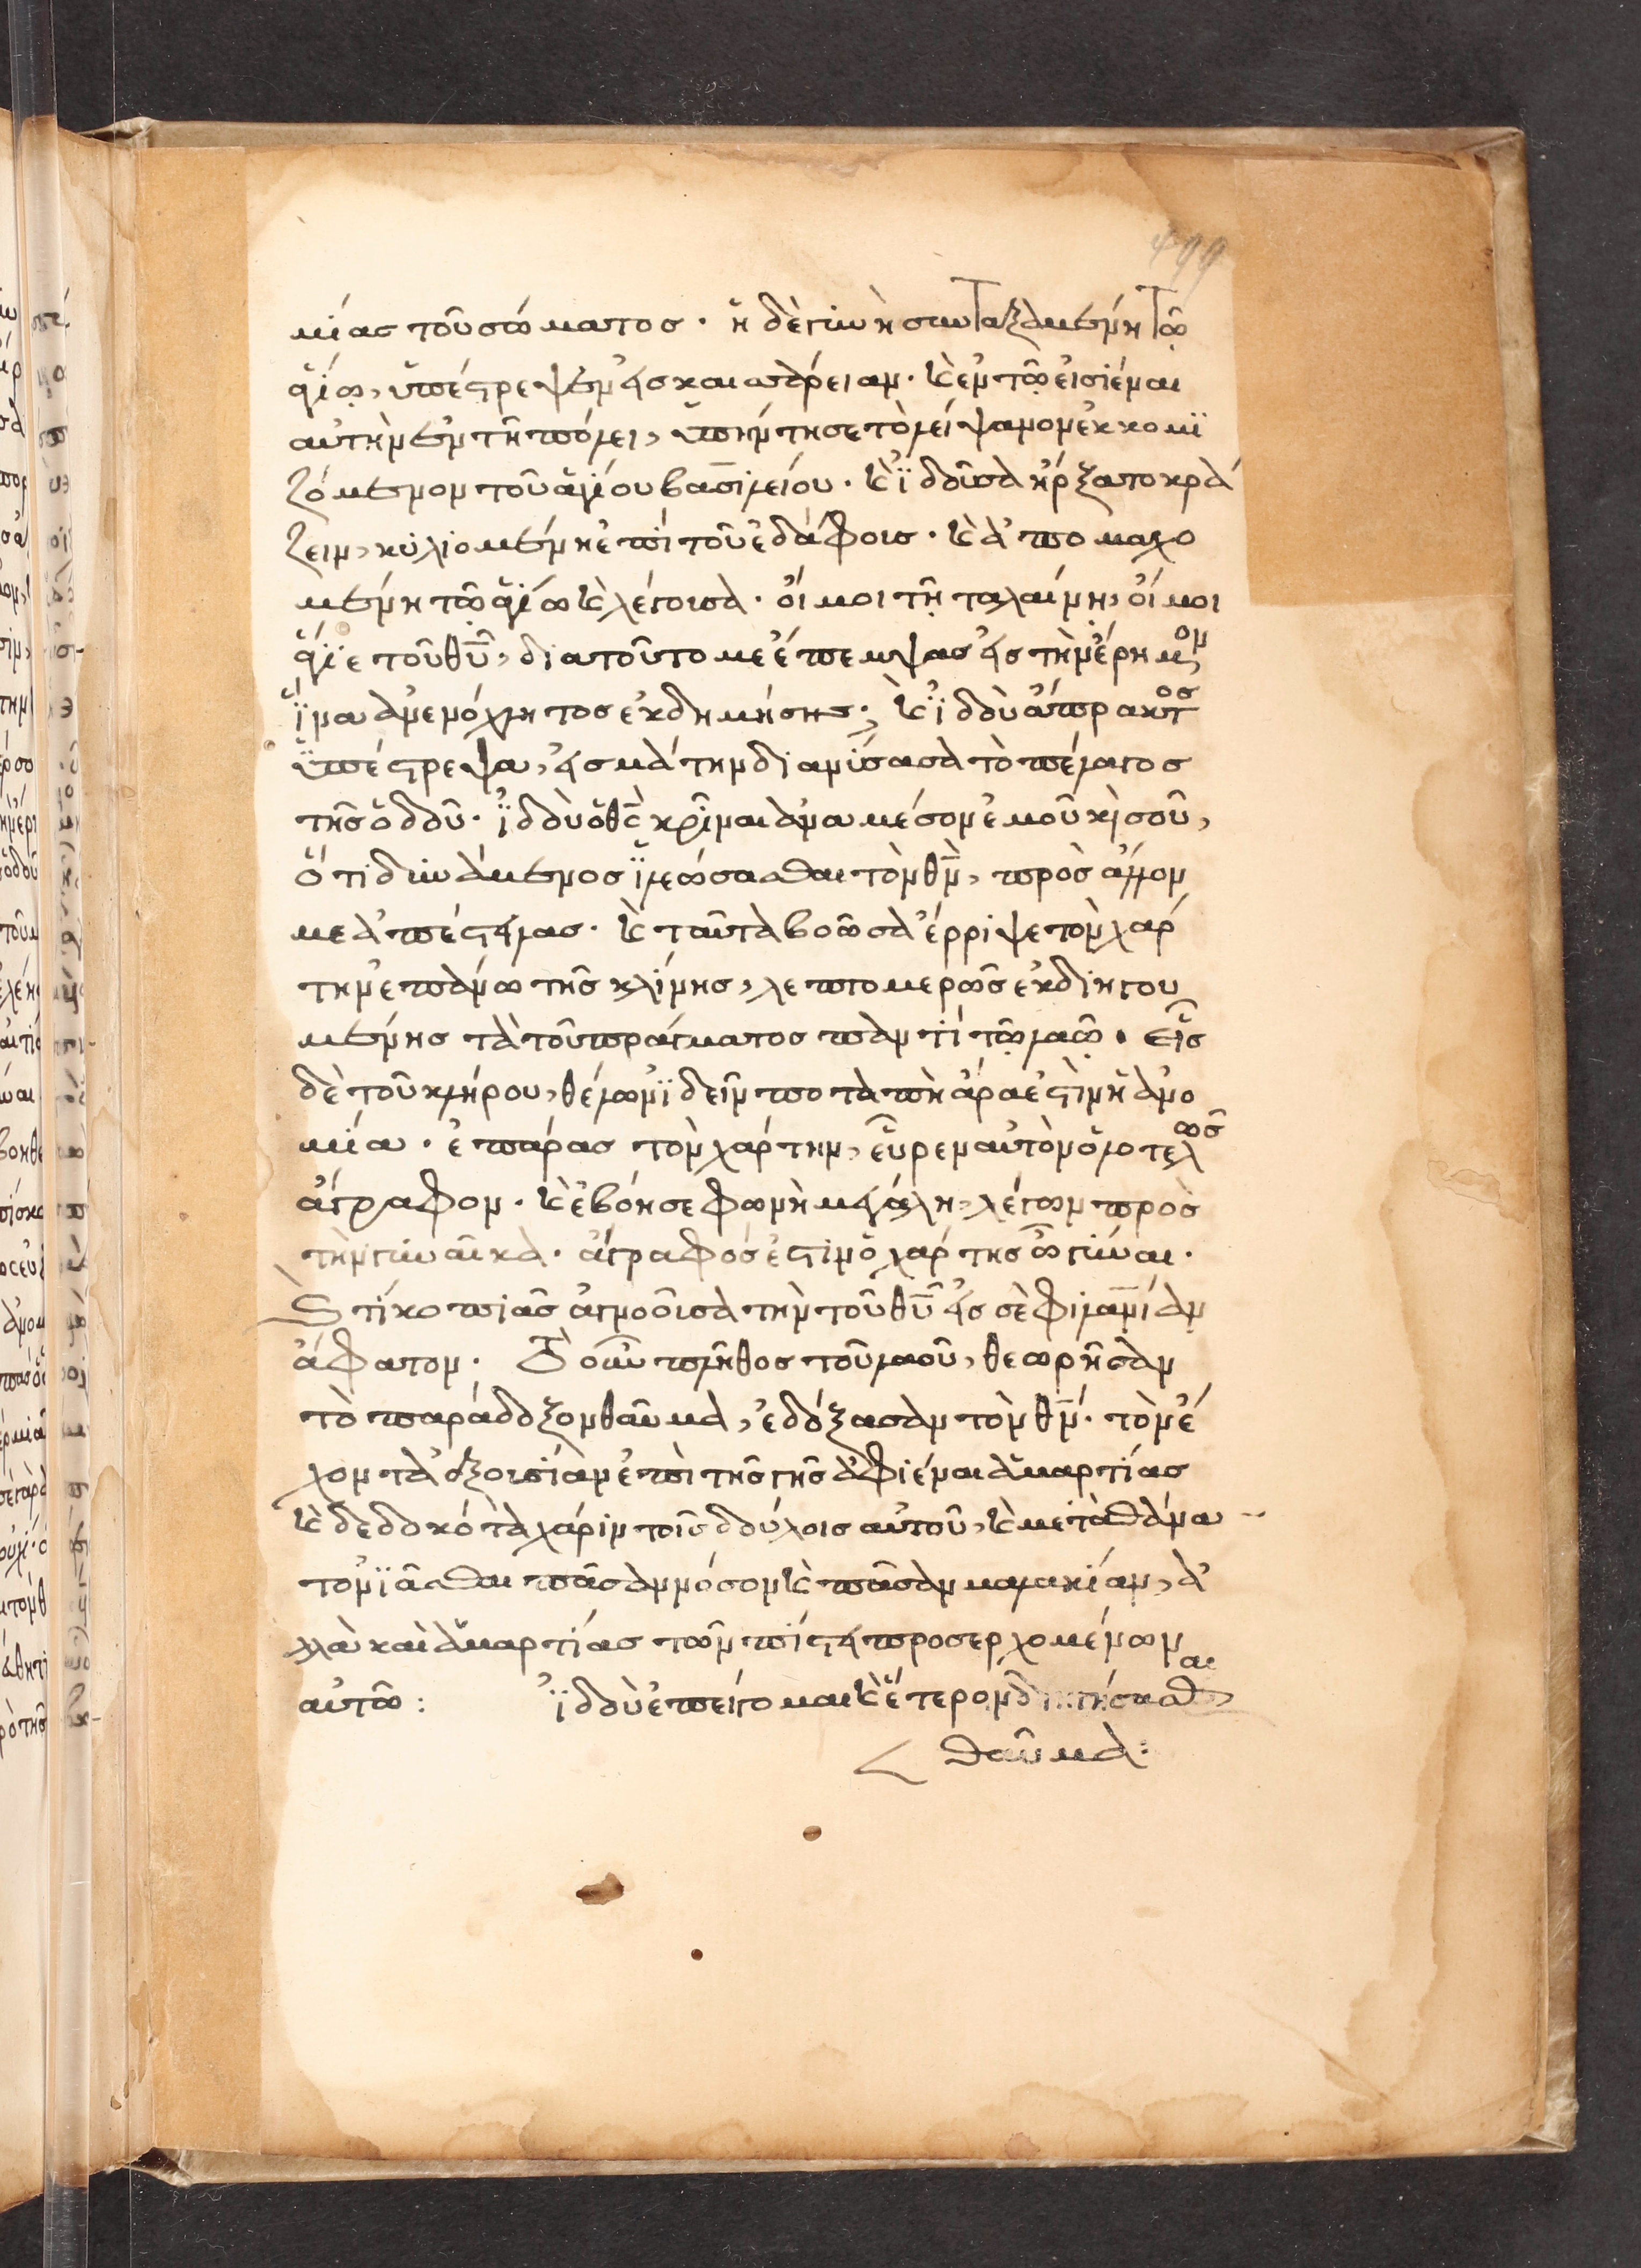 499
μίας τοῦ σώματος· ἡ δὲ γυνὴ συνταξαμένη τῷ
ἁγίῳ, ὑπέστρεψεν εἰς καισάρειαν· κ̀ ἐν τῷ εἰσιέναι
αὐτὴν ἐν τῇ πόλει, ὑπήντησε τὸ λείψανον ἐκκομϊ
ζόμενον τοῦ ἁγίου βασιλείου· κ̀ ἰ̈δοῦσα ἤρξατο κρά
ζειν, κυλιομένη ἐπὶ τοῦ ἐδάφους· κ̀ ἀπομαχο
μένη τῷ ἁγίῳ κ̀ λέγουσα· οἴμοι τῇ ταλαίνῃ, οἴμοι
ἅγϊε τοῦ θῡ, διατοῦτο με ἔπεμψας εἰς τὴν ἔρημον
ἵ̈να ἀνενόχλητος ἐκδημήσης; κ̀ ἰ̈δοὺ ἄπρακτος
ὑ̈πέστρεψα, εἰς μάτην διανύσασα τὸ πέλαγος
τῆς ὁδοῦ· ἰ̈δοὺ ὁ θς̄ κρῖναι ἀναμέσον ἐμοῦ κὶ σοῦ,
ὅτι δυνάμενος ἱ̈λεώσασθαι τὸν θν̄, πρὸς ἄλλον
με ἀπέστειλας· κ̀ ταῦτα βοῶσα ἔρριψε τὸν χάρ
την ἐπάνω τῆς κλίνης, λεπτομερῶς ἐκδιηγου
μένης τὰ τοῦ πράγματος παντὶ τῷ λαῷ· εἷς
δὲ τοῦ κλήρου, θέλων ἰ̈δεῖν ποταπὴ ἄρα ἐστὶν ἡ ἀνο
μία· ἐπάρας τὸν χάρτην, εὗρεν αὐτὸν ὁλοτελῶς
ἄγραφον· κ̀ ἐβόησε φωνὴ μεγάλη, λέγων πρὸς
τὴν γυναῖκα· ἄγραφός ἐστιν ὁ χάρτης ὦ γύναι·
Τί κοπιᾶς ἀγνοοῦσα τὴν τοῦ θῡ εἰς σὲ φιλαν̄ίαν
ἄφατον· Τὸ οὖν πλῆθος τοῦ λαοῦ, θεωρῆσαν
τὸ παράδοξον θαῦμα, ἐδόξασαν τὸν θν̄· τὸν ἔ
χοντα ἐξουσίαν ἐπὶ τῆς γῆς ἀφιέναι ἁμαρτίας
κ̀ δεδοκότα χάριν τοῖς δούλοις αὐτοῦ, κ̀ μετὰ θάνα
τον ἰ̈ᾶσθαι πᾶσαν νόσον κ̀ πᾶσαν μαλακίαν, ἀ
λλὰ καὶ ἁμαρτίας τῶν πίστει προσερχομένων
αὐτῶ: ἰ̈δοὺ ἐπείγομαι κ̀ ἕτερον διηγήσασθαι
θαῦμα: